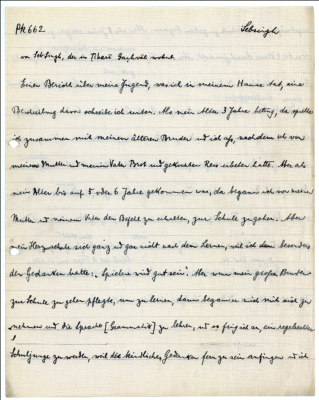 PK 662 Sebsingh
von Seb Singh, der in Tihari Garhwal wohnt
Einen Bericht über meine Jugend, was ich in meinem Hause tat, eine
Beschreibung davon schreibe ich unten. Als mein Alter 3 Jahre betrug, da spielte
ich zusammen mit meinem älteren Bruder und ich aß, nachdem ich von
meiner Mutter und meinem Vater Brot und gekochten Reis erbeten hatte. Aber als
mein Alter bis auf 5 oder 6 Jahre gekommen war, da begann ich von meiner
Mutter und meinem Vater den Befehl zu erhalten, zur Schule zu gehen. Aber
mein Herz sehnte sich ganz und gar nicht nach dem Lernen, weil ich dem besonders
den Gedanken hatte: "Spielen wird gut sein". Aber wenn mein großer Bruder
zur Schule zu gehen pflegte, um zu lernen, dann begann er mich mit sich zu
nehmen und die Sprache [Grammatik] zu lehren, und so fing ich an, ein regelrechter
Schuljunge zu werden, weil die kindlichen Gedanken fern zu sein anfingen und ich